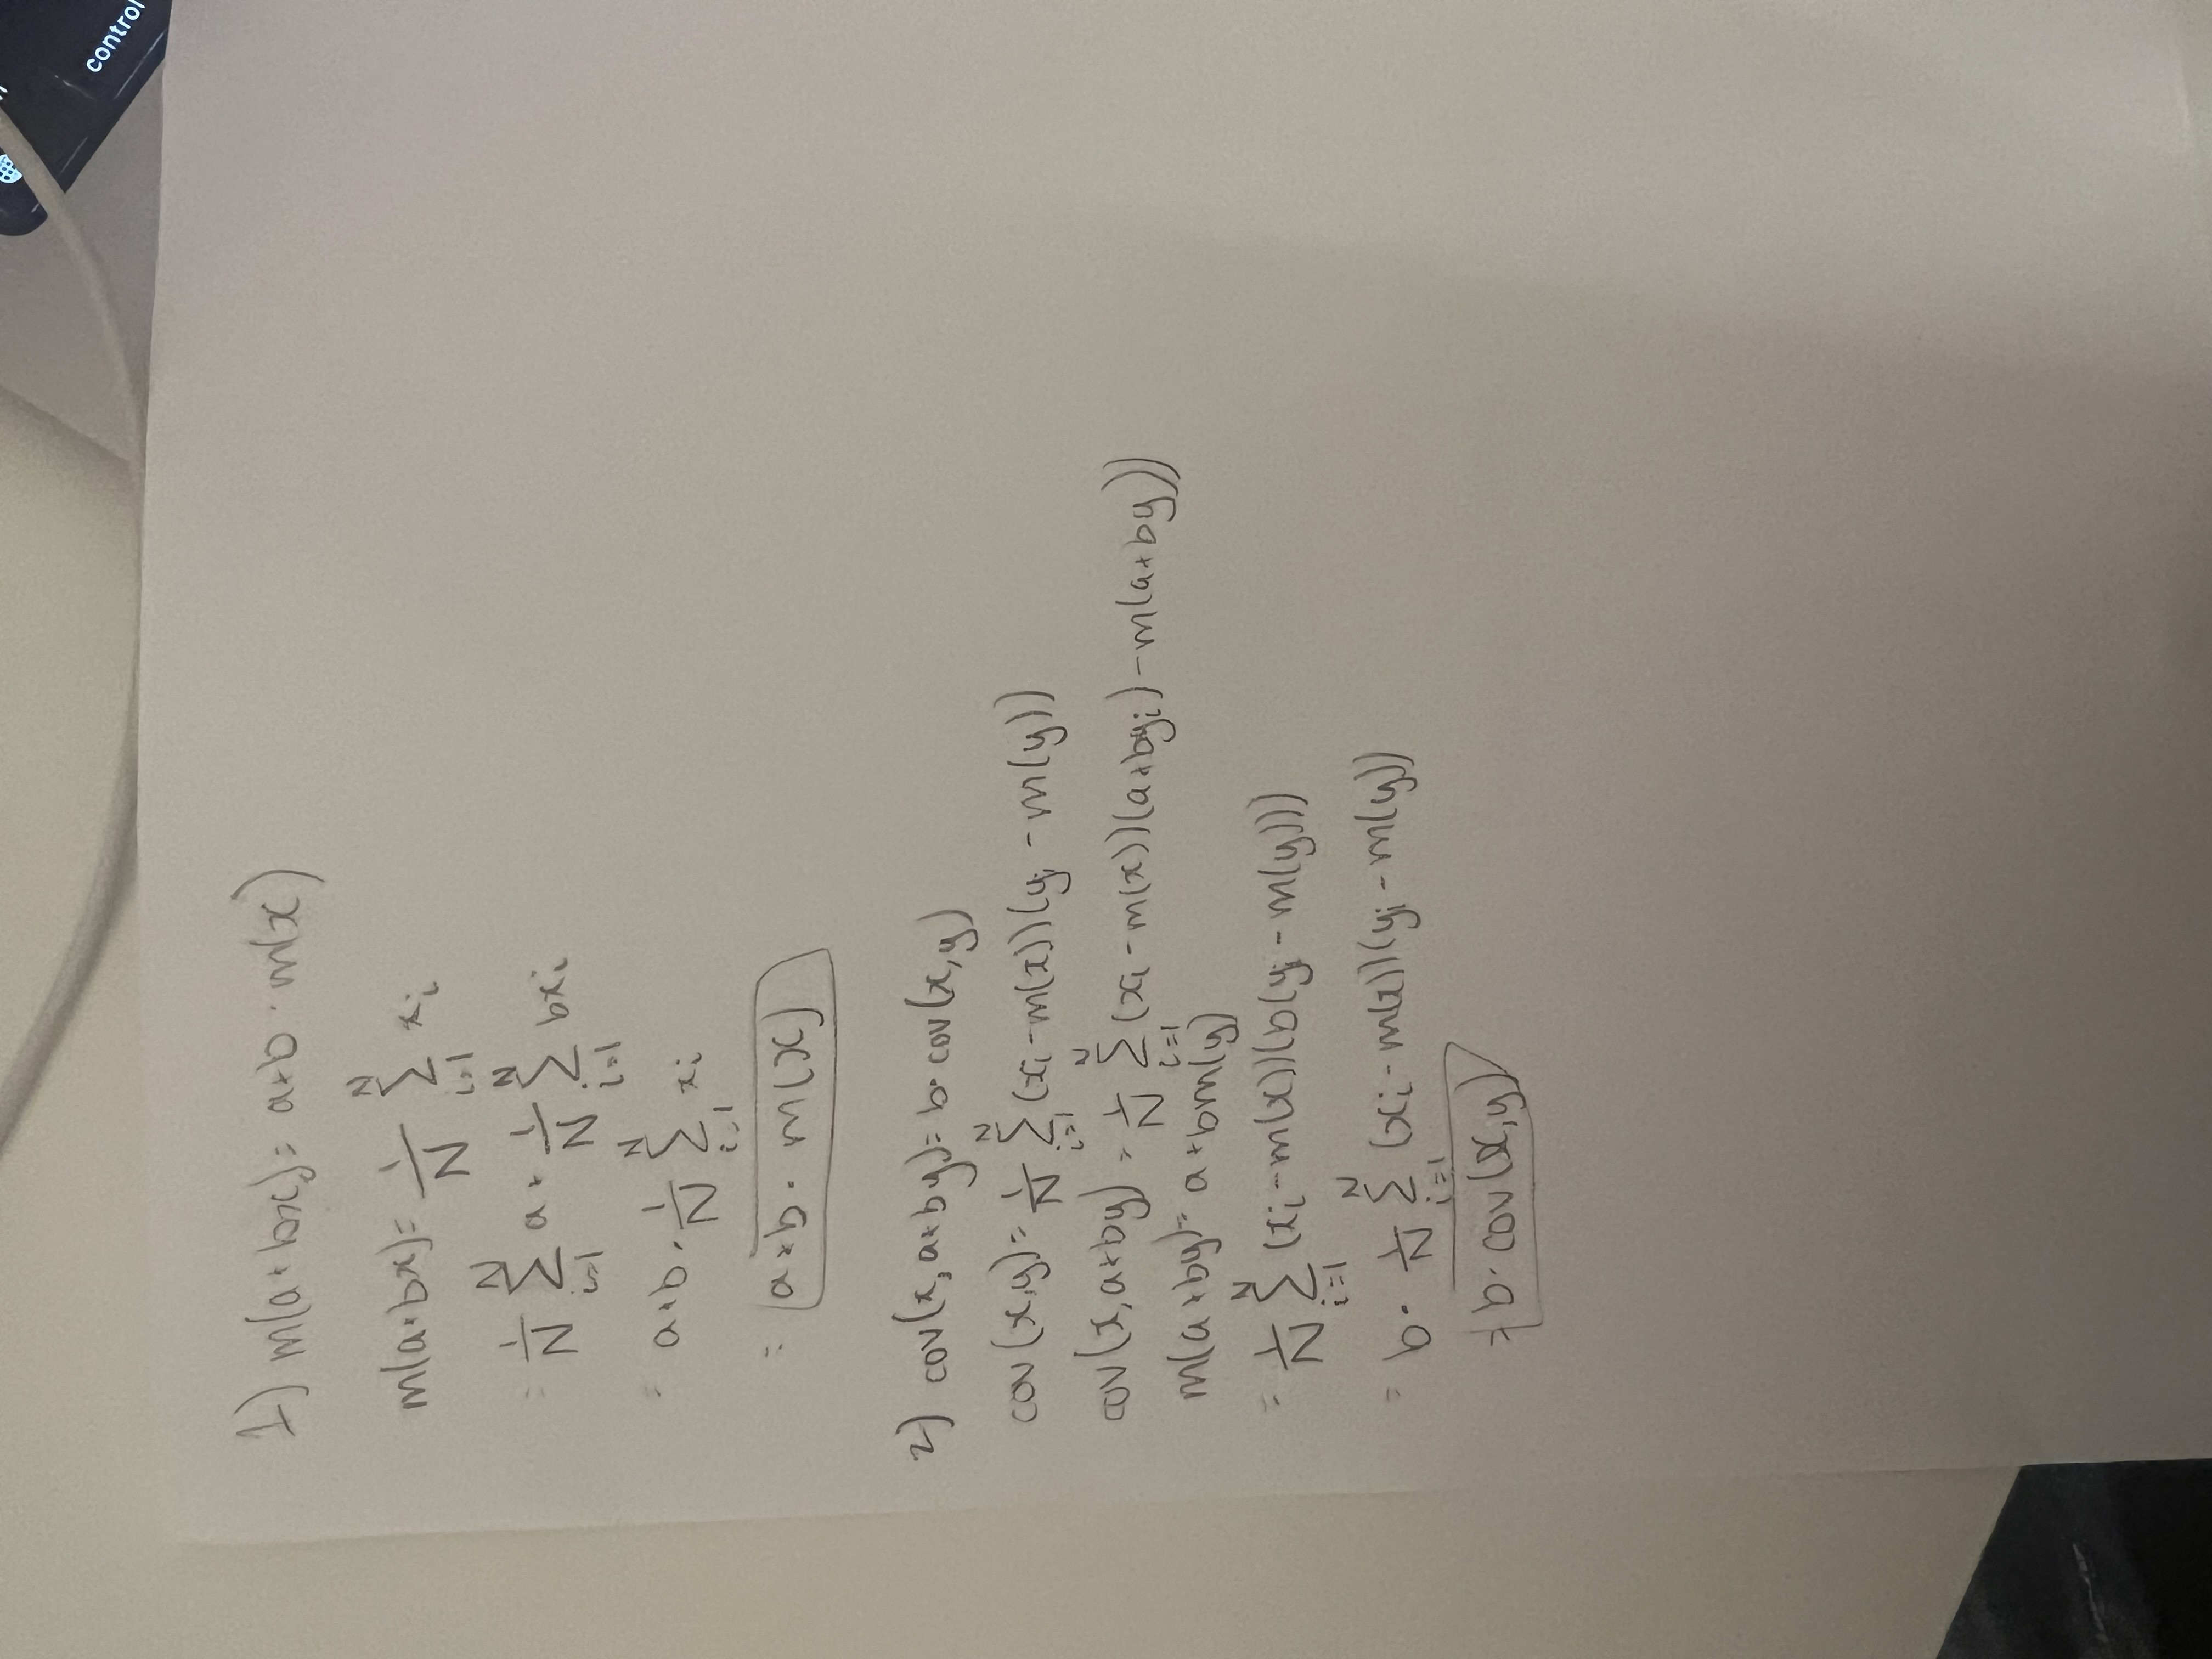 control
1) m(a+bx)= a+b · m(x)
m(a+bx)= 1/N Σ_{i=1}^{N} x_i
= 1/N Σ_{i=1}^{N} a + 1/N Σ_{i=1}^{N} bx_i
= a+b · 1/N Σ_{i=1}^{N} x_i
= a+b · m(x)
2) cov(x, a+by)= b· cov(x,y)
cov(x,y)= 1/N Σ_{i=1}^{N} (x_i - m(x))(y_i - m(y))
cov(x, a+by) = 1/N Σ_{i=1}^{N} (x_i - m(x))(a+by_i) - m(a+by))
m(a+by)= a+bm(y)
= 1/N Σ_{i=1}^{N} (x_i - m(x))(b(y_i - m(y)))
= b· 1/N Σ_{i=1}^{N} (x_i - m(x))(y_i - m(y))
= b· cov(x,y)